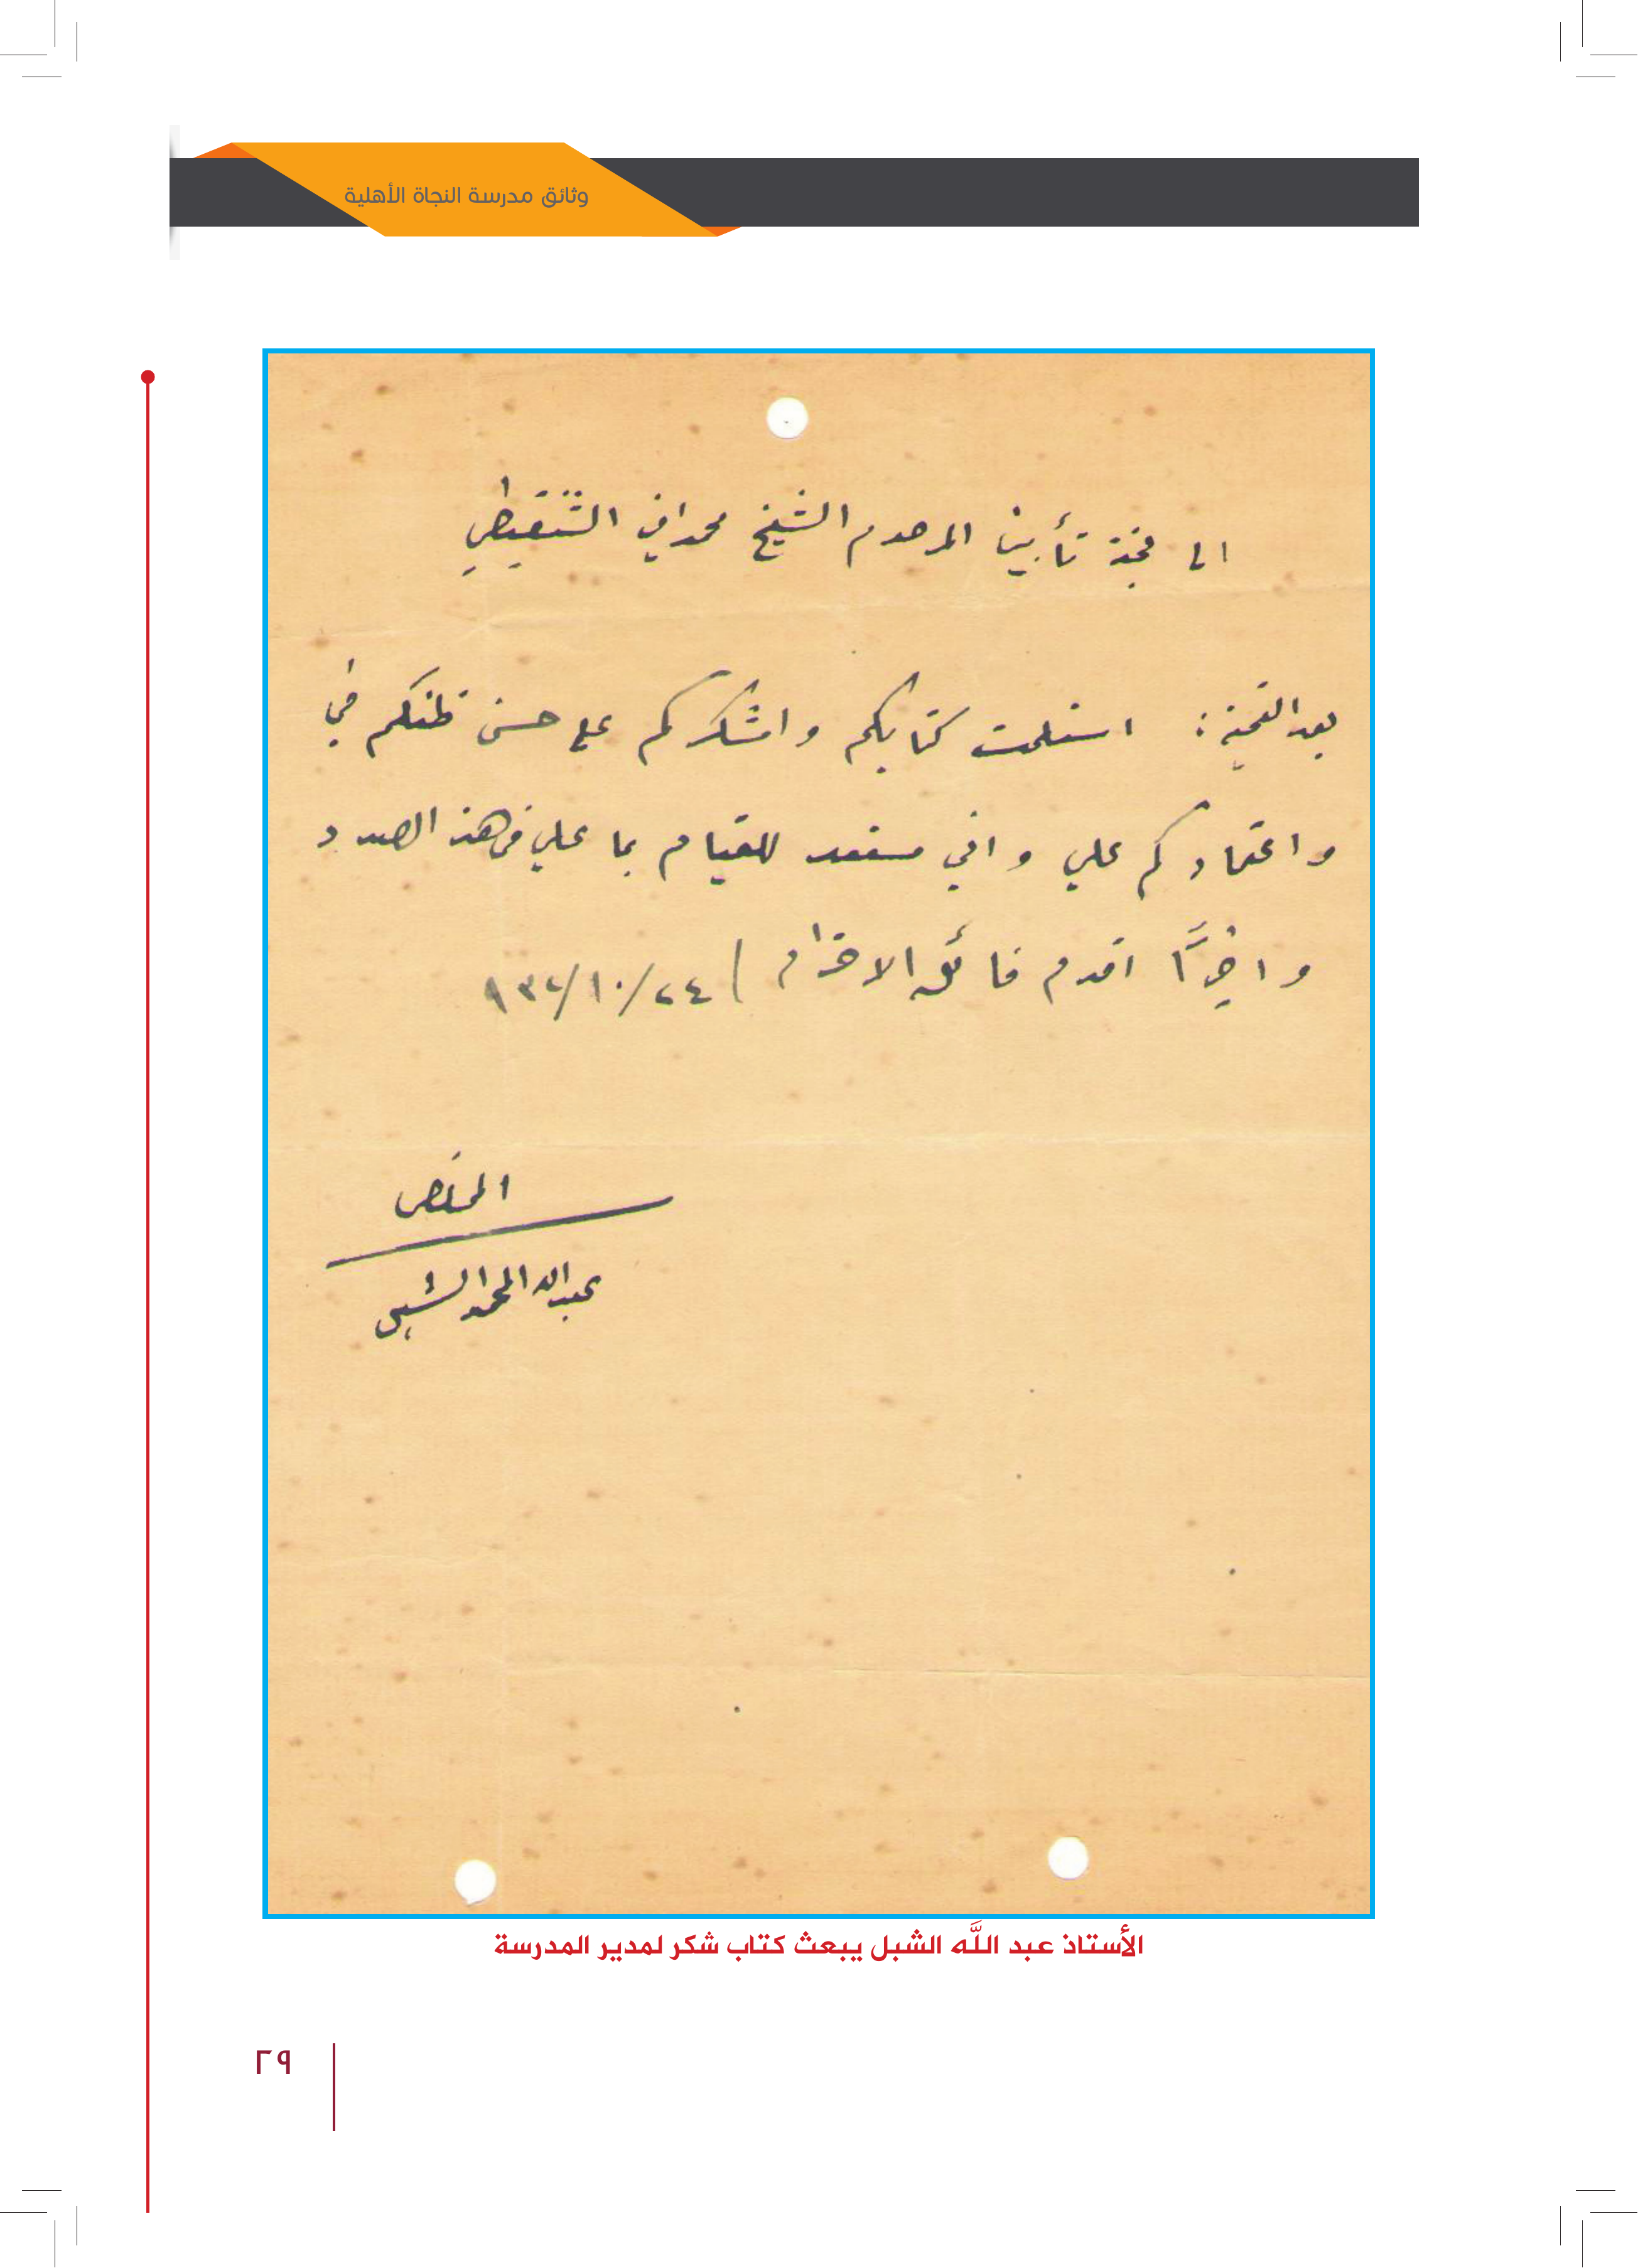 وثائق مدرسة النجاة الأهلية
الى لجنة تأبين المرحوم الشيخ محمد امين الشنقيطي
بعد التحية : استلمت كتابكم واشكركم على حسن ظنكم في
واعتمادكم علي واني مستعد للقيام بما علي في هذا الصدد
واخيرًا اقدم فائق الاحترام / ٢٤/١٠/٩٣٢
المخلص
عبدالله المحمد الشبل
الأستاذ عبد اللَّه الشبل يبعث كتاب شكر لمدير المدرسة
٢٩